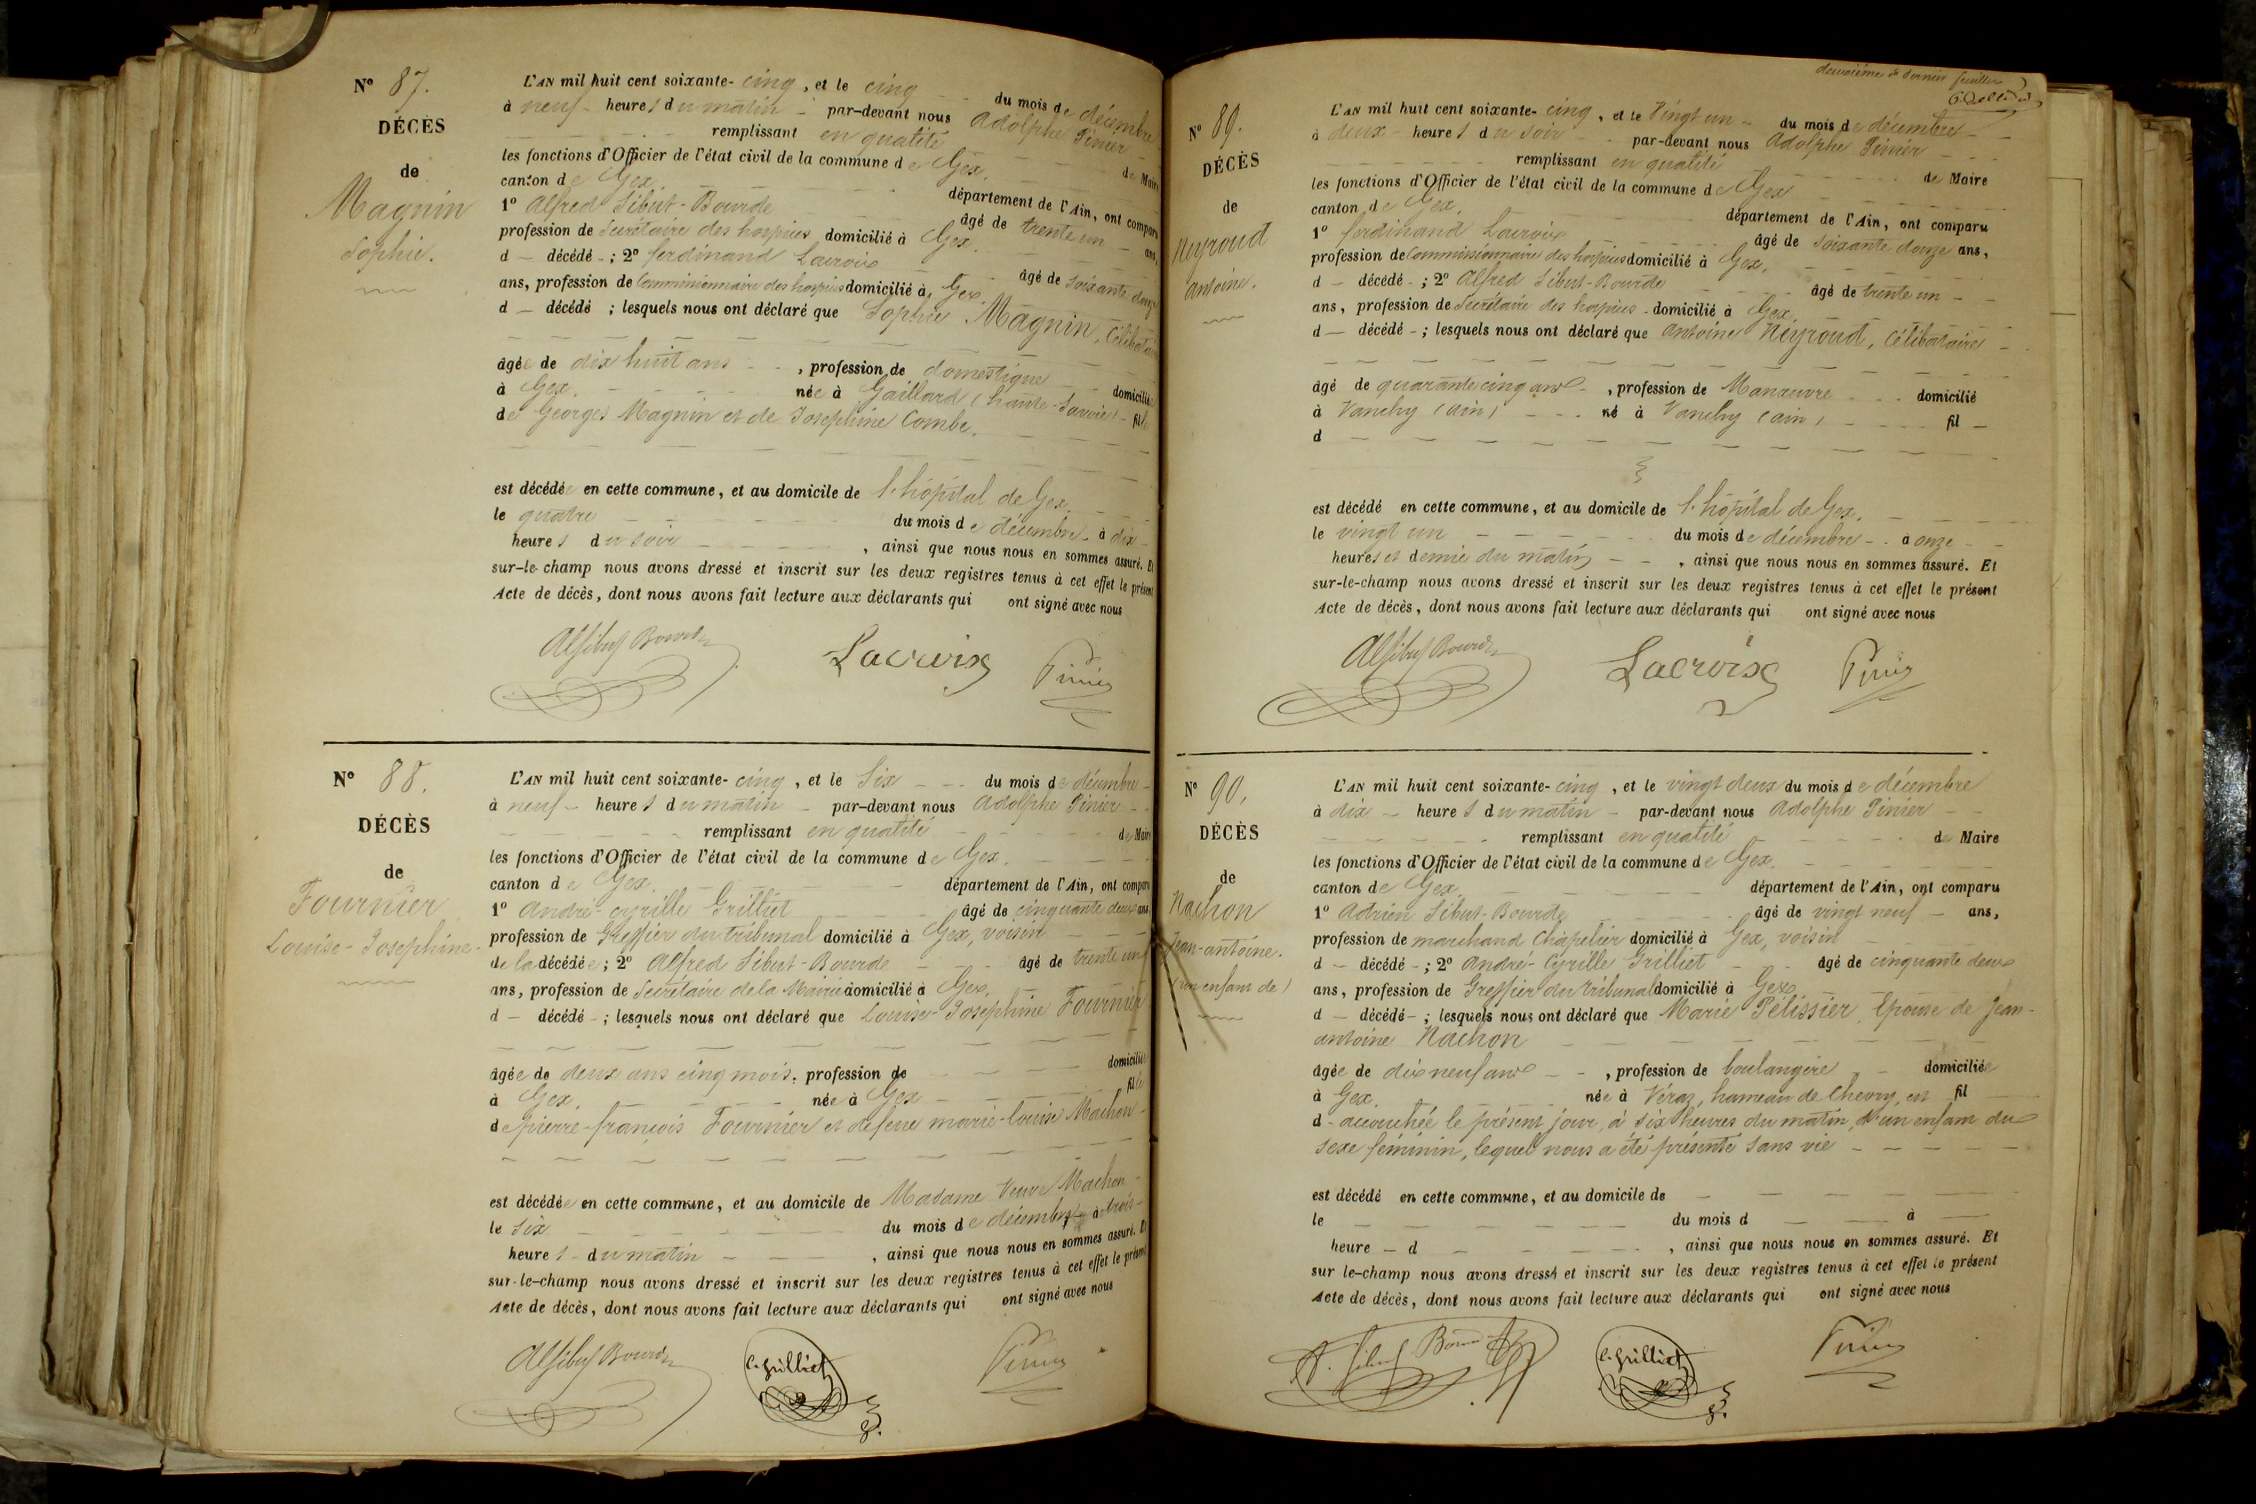 N° 87.
DÉCÈS
de
Magnin
Sophie.
L'AN mil huit cent soixante-cinq, et le cinq du mois de décembre
à neuf heures du matin par-devant nous Adolphe Pinier
remplissant en qualité de Maire
les fonctions d'Officier de l'état civil de la commune de Gex.
canton de Gex département de l'Ain, ont comparu
1° Alfred Sibut-Bourde âgé de trente un ans,
profession de Secrétaire des hospices domicilié à Gex.
d décédé ; 2° ferdinand Lacroix âgé de soixante douze
ans, profession de Commissionnaire des hospices domicilié à Gex.
d décédé ; lesquels nous ont déclaré que Sophie Magnin, Célibataire
âgée de dix huit ans, profession de domestique domiciliée
à Gex. née à Gaillard (haute-Savoie) fille
de Georges Magnin et de Josephine Combe.
est décédée en cette commune, et au domicile de l'hôpital de Gex
le quatre du mois de décembre à dix
heures du soir, ainsi que nous nous en sommes assuré. Et
sur-le-champ nous avons dressé et inscrit sur les deux registres tenus à cet effet le présent
Acte de décès, dont nous avons fait lecture aux déclarants qui ont signé avec nous
Alf Sibut Bourde Lacroix Pinier
N° 88.
DÉCÈS
de
Fournier
Louise-Josephine.
L'AN mil huit cent soixante-cinq, et le Six du mois de décembre
à neuf heures du matin par-devant nous Adolphe Pinier
remplissant en qualité de Maire
les fonctions d'Officier de l'état civil de la commune de Gex.
canton de Gex. département de l'Ain, ont comparu
1° André-Cyrille Grilliet âgé de cinquante deux ans,
profession de Greffier du tribunal domicilié à Gex, voisin
de la décédée ; 2° Alfred Sibut-Bourde âgé de trente un
ans, profession de Secrétaire de la Mairie domicilié à Gex.
d décédé ; lesquels nous ont déclaré que Louise-Josephine Fournier
âgée de deux ans cinq mois, profession de domiciliée
à Gex. née à Gex fille
de pierre-françois Fournier et défeue marie-louise Machon
est décédée en cette commune, et au domicile de Madame Veuve Machon
le Six du mois de décembre à trois
heures du matin, ainsi que nous nous en sommes assuré. Et
sur-le-champ nous avons dressé et inscrit sur les deux registres tenus à cet effet le présent
Acte de décès, dont nous avons fait lecture aux déclarants qui ont signé avec nous
Alf Sibut Bourde C. Grilliet Pinier
deuxième & dernier feuillet
N° 89.
DÉCÈS
de
Neyroud
Antoine.
L'AN mil huit cent soixante-cinq, et le Vingt un du mois de décembre
à deux heures du soir par-devant nous Adolphe Pinier
remplissant en qualité de Maire
les fonctions d'Officier de l'état civil de la commune de Gex
canton de Gex. département de l'Ain, ont comparu
1° ferdinand Lacroix âgé de soixante douze ans,
profession de Commissionnaire des hospices domicilié à Gex.
d décédé ; 2° Alfred Sibut-Bourde âgé de trente un
ans, profession de Secrétaire des hospices domicilié à Gex.
d décédé ; lesquels nous ont déclaré que Antoine Neyroud, Célibataire
âgé de quarante cinq ans, profession de Manœuvre domicilié
à Vanchy (ain) né à Vanchy (ain) fil
d
est décédé en cette commune, et au domicile de l'hôpital de Gex.
le vingt un du mois de décembre à onze
heures et demie du matin, ainsi que nous nous en sommes assuré. Et
sur-le-champ nous avons dressé et inscrit sur les deux registres tenus à cet effet le présent
Acte de décès, dont nous avons fait lecture aux déclarants qui ont signé avec nous
Alf Sibut Bourde Lacroix Pinier
N° 90.
DÉCÈS
de
Nachon
Jean-antoine.
(un enfant de)
L'AN mil huit cent soixante-cinq, et le vingt deux du mois de décembre
à dix heures du matin par-devant nous Adolphe Pinier
remplissant en qualité de Maire
les fonctions d'Officier de l'état civil de la commune de Gex.
canton de Gex. département de l'Ain, ont comparu
1° Adrien Sibut-Bourde âgé de vingt neuf ans,
profession de marchand Chapelier domicilié à Gex, voisin
d décédé ; 2° André-Cyrille Grilliet âgé de cinquante deux
ans, profession de Greffier du tribunal domicilié à Gex
d décédé ; lesquels nous ont déclaré que Marie Pélissier, Epouse de Jean-
antoine Nachon
âgée de dix neuf ans, profession de boulangère domiciliée
à Gex. née à Véraz, hameau de Chevry, est fil
d accouchée le présent jour, à six heures du matin, d'un enfant du
sexe féminin, lequel nous a été présenté sans vie
est décédé en cette commune, et au domicile de
le du mois d à
heure d, ainsi que nous nous en sommes assuré. Et
sur le-champ nous avons dressé et inscrit sur les deux registres tenus à cet effet le présent
Acte de décès, dont nous avons fait lecture aux déclarants qui ont signé avec nous
A. Sibut Bourde C. Grilliet Pinier